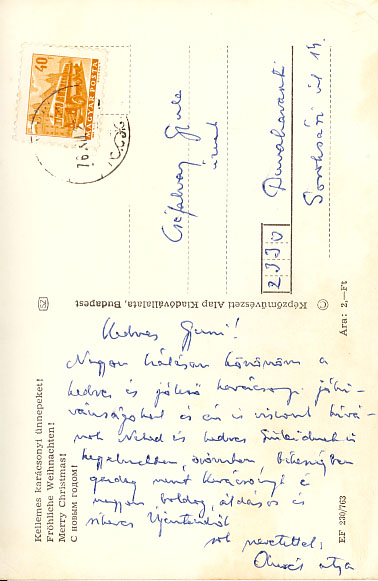 40
MAGYAR POSTA
Gyula
Dunaharaszti
Soroksári út
2330
Képzőművészeti Alap Kiadóvállalata, Budapest
Ára: 2,—Ft
EF 230/763
Kellemes karácsonyi ünnepeket!
Fröhliche Weihnachten!
Merry Christmas!
С новым годом!
Kedves
Nagyon hálásan köszönöm a
kedves és jóleső karácsonyi jókí-
vánságokat és én is viszont kívá-
nok Neked és kedves Szüleidnek is
kegyelmekben, örömben, békességben
gazdag szent Karácsonyt és
nagyon boldog, áldásos és
sikeres Újesztendőt
sok szeretettel:
atya